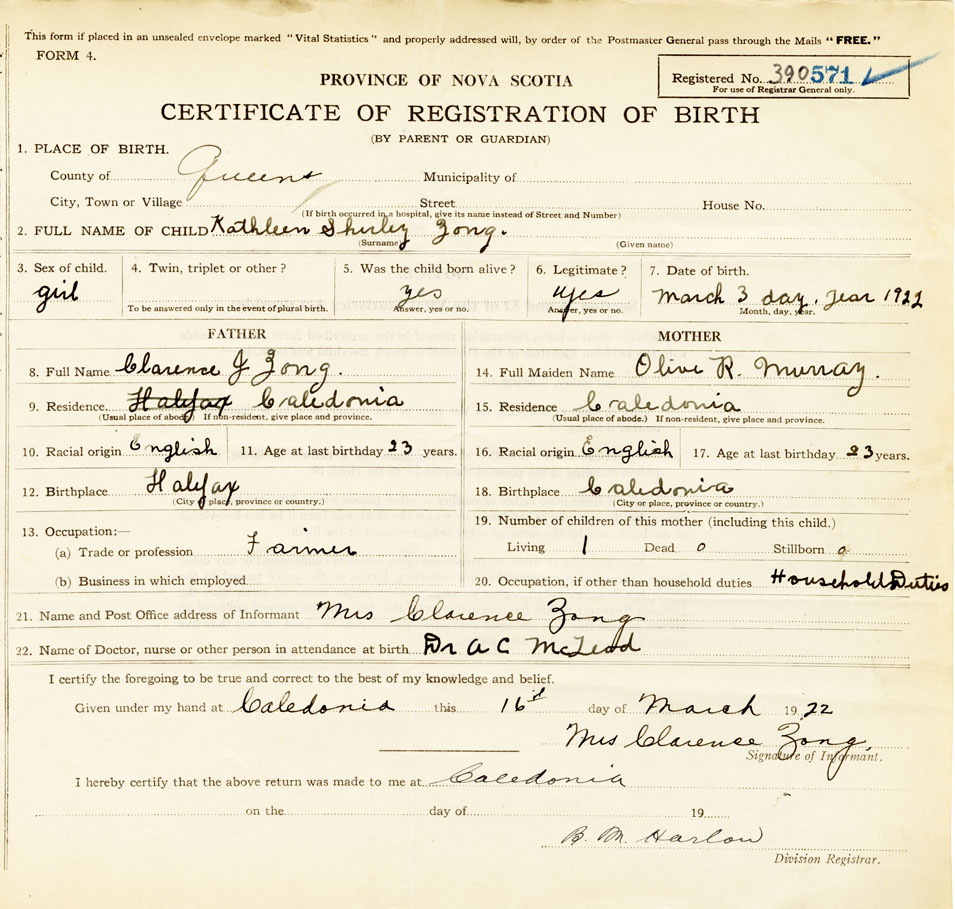 This form if placed in an unsealed envelope marked "Vital Statistics" and properly addressed will, by order of the Postmaster General pass through the Mails "FREE."
FORM 4.
PROVINCE OF NOVA SCOTIA
Registered No. 390571
For use of Registrar General only.
CERTIFICATE OF REGISTRATION OF BIRTH
(BY PARENT OR GUARDIAN)
1. PLACE OF BIRTH.
County of Queens Municipality of
City, Town or Village Street House No.
(If birth occurred in a hospital, give its name instead of Street and Number)
2. FULL NAME OF CHILD Kathleen Shirley Zong.
(Surname) (Given name)
3. Sex of child. 4. Twin, triplet or other? 5. Was the child born alive? 6. Legitimate? 7. Date of birth.
girl yes yes March 3 day. Year 1922
To be answered only in the event of plural birth. Answer, yes or no. Answer, yes or no. Month, day, year.
FATHER MOTHER
8. Full Name Clarence J Zong. 14. Full Maiden Name Olive R. Murray.
9. Residence Halifax Caledonia 15. Residence Caledonia
(Usual place of abode.) If non-resident, give place and province. (Usual place of abode.) If non-resident, give place and province.
10. Racial origin English 11. Age at last birthday 23 years. 16. Racial origin English 17. Age at last birthday 23 years.
12. Birthplace Halifax 18. Birthplace Caledonia
(City or place, province or country.) (City or place, province or country.)
13. Occupation:— 19. Number of children of this mother (including this child.)
(a) Trade or profession Farmer Living 1 Dead 0 Stillborn 0
(b) Business in which employed 20. Occupation, if other than household duties Household Duties
21. Name and Post Office address of Informant Mrs Clarence Zong
22. Name of Doctor, nurse or other person in attendance at birth Dr A C McLeod
I certify the foregoing to be true and correct to the best of my knowledge and belief.
Given under my hand at Caledonia this 16 day of March 1922
Mrs Clarence Zong,
Signature of Informant.
I hereby certify that the above return was made to me at Caledonia
on the day of 19
B. M. Harlow
Division Registrar.